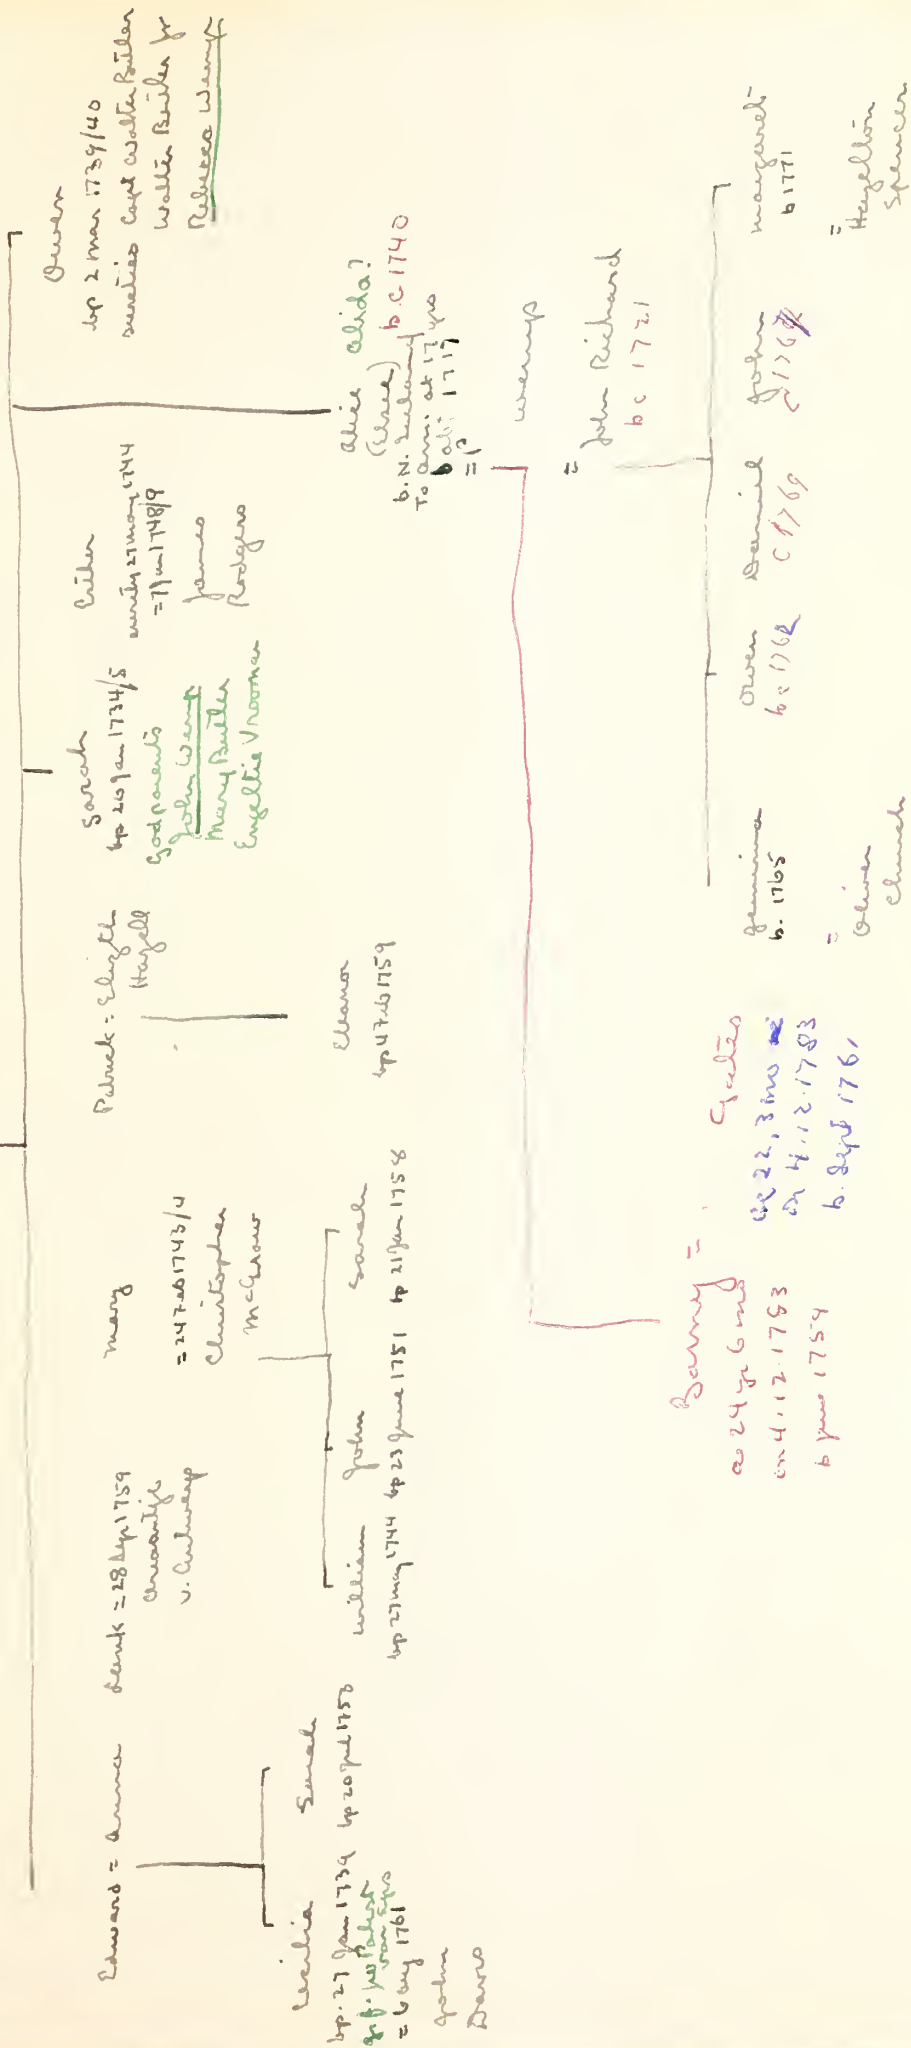 Edward = Anna
Cecilia
bp. 27 Jan 1739
van Eps
= 6 Aug 1761
John
Davis
Sarah
bp 20 Jul 1753
Hank = 28 Sep 1759
v. Antwerp
Mary
= 24 Feb 1743/4
Christopher
McGraw
William
bp 27 May 1744
John
bp 23 June 1751
Sarah
bp 21 Jan 1758
Patrick = Elizth
Hazell
Eleanor
bp 4 Feb 1759
Sarah
bp 26 Jan 1734/5
Godparents
John Wemp
Mary Butler
Engeltie Vrooman
Esther
27 May 1744
= 7 Jan 1748/9
James
Rodgers
Owen
bp 2 Mar 1739/40
sureties Capt Walter Butler
Walter Butler Jr
Rebecca Wemp
Alice Alida?
(Elsie) b.c 1740
b. N. Ireland
To Am. at 17 yrs
b abt 1717
= B
Wemp
=
John Richard
b c 1721
Barney = Gates
ae 24 yr 6 mo
on 4.12.1783
b June 1759
ae 22, 3 mo
on 4.12.1783
b. Sept 1761
Jemima
b. 1765
=
Oliver
Church
Owen
b c 1762
Daniel
c 1769
John
Margaret
b 1771
=
Hazelton
Spencer